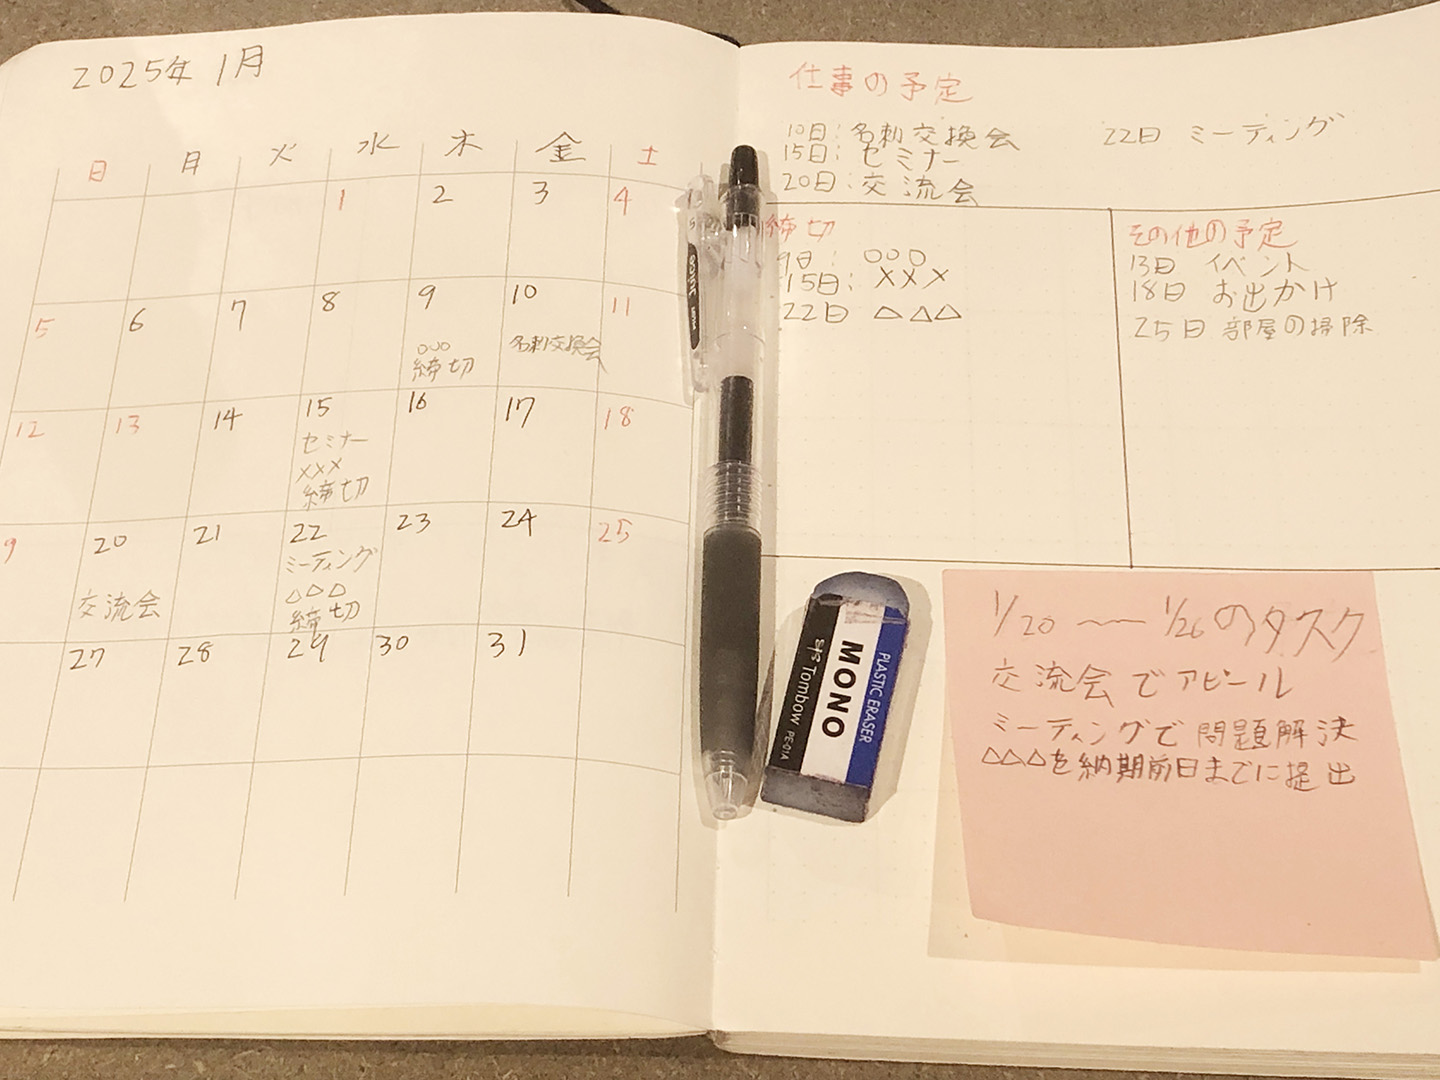 2025年 1月
日 月 火 水 木 金 土
1 2 3 4
5 6 7 8 9 10 11
○○○
締切
名刺交換会
12 13 14 15 16 17 18
セミナー
×××
締切
9 20 21 22 23 24 25
交流会
ミーティング
△△△
締切
27 28 29 30 31
仕事の予定
10日:名刺交換会 22日 ミーティング
15日:セミナー
20日:交流会
締切
9日: ○○○
15日: ×××
22日 △△△
その他の予定
13日 イベント
18日 お出かけ
25日 部屋の掃除
1/20 〜 1/26のタスク
交流会でアピール
ミーティングで問題解決
△△△を納期前日までに提出
PLASTIC ERASER
MONO
Tombow PE-01A